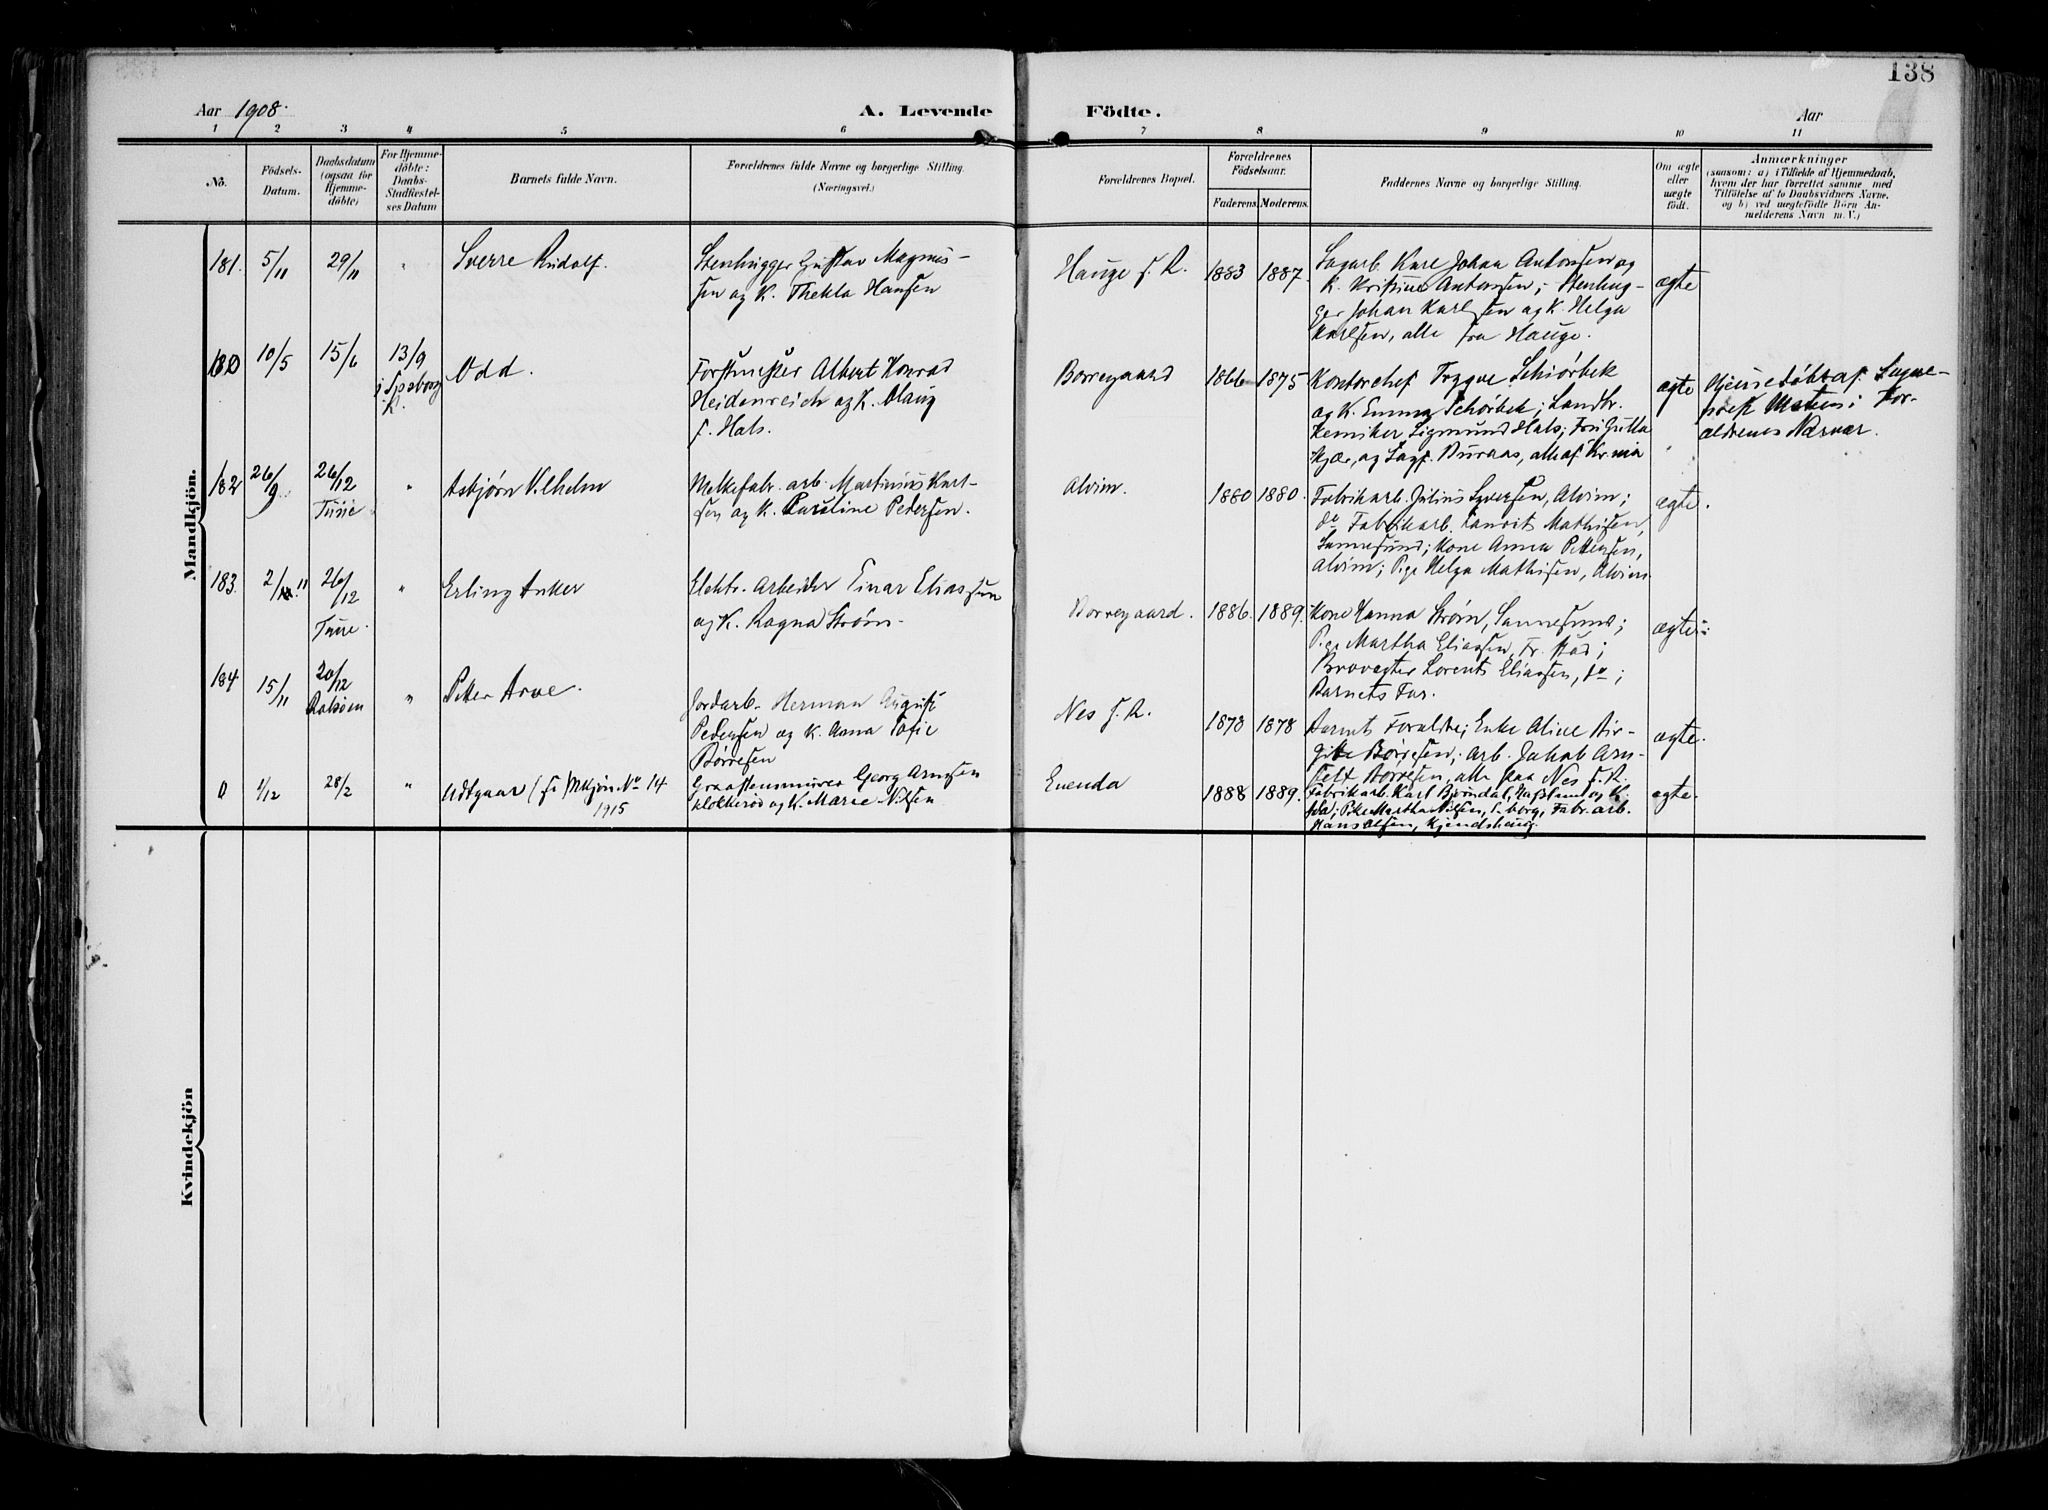 138
Aar 1908. A. Levende Födte. Aar
1 2 3 4 5 6 7 8 9 10 11
No.
Födsels-
Datum.
Daabsdatum
(ogsaa for
Hjemme-
döbte)
For Hjemme-
döbte:
Daabs-
Stadfæstel-
ses Datum
Barnets fulde Navn.
Forældrenes fulde Navne og borgerlige Stilling.
(Næringsvei.)
Forældrenes Bopæl.
Forældrenes
Födselsaar.
Faderens. Moderens.
Faddernes Navne og borgerlige Stilling.
Om ægte
eller
uægte
födt.
Anmærkninger
(saasom: a) i Tilfælde af Hjemmedaab,
hvem der har forrettet samme med
Tilföielse af to Daabsvidners Navne,
og b) ved uægtefödte Börn An-
melderens Navn m. V.)
Mandkjön.
181. 5/11 29/11 " Sverre Rudolf.
Stenhugger Gustav Magnus-
sen og K. Thekla Hansen
Hauge s. R. 1883 1887.
Sagarb. Kare Johan Antonsen og
K. Kristine Antonsen; Stenhug-
ger Johan Karlsen og K. Helga
Karlsen, alle fra Hauge.
ægte
180 10/5 15/6 13/9
i
K.
Odd.
Forstmester Albert Konrad
Heidenreich og K. Aslaug
f. Hals.
Borregaard 1866 1875
Kontorchef Trygve Schiørbek
og K. Emma Schørbek; Landbr.
Kemiker Sigmund Hals; Frk Gutta
Kjær, og Sagf. Buraas, alle af Kr.nia
ægte
Hjemmedøbt af Sogne-
præst i For-
ældrenes Nærvær.
182 26/9 26/12
Tune
" Asbjørn Vilhelm
Melkefabr. arb. Martinius Karl-
sen og K. Pauline Pedersen.
Alvim. 1880 1880.
Fabrikarb. Julius Syversen, Alvim;
do Fabrikarb. Laurits Mathisen,
Sannesund; Kone Anna Pettersen,
Alvim; Pige Helga Mathisen, Alvim
ægte.
183. 2/11 26/12
Tune.
" Erling Anker
Elektr. Arbeider Einar Eliassen
og K. Ragna Strøm.
Borregaard. 1886. 1889.
Kone Hanna Strøm, Sannesund;
Pige Martha Eliassen, Fr. stad;
Brovogter Lorents Eliassen, do;
Barnets Far.
ægte
184 15/11 20/12
Rolsøen
" Petter Arve.
Jordarb. Herman August
Pedersen og K. Anna Sofie
Børresen
Nes s. R. 1878 1878
Barnets Forældre; Enke Aline Bir-
gitte Børresen; Arb. Jakob Arn-
felt Børresen, alle paa Nes s. R.
ægte.
0 1/12 28/2 " Udgaar (se) Mkjøn No 14
1915
Graastensmurer Georg Arnesen
Klokkerød og K. Marie Nilsen
Evenda 1888 1889.
Fabrikarb. Karl Bjørndal, Hafslund og K.
Pike Martha Nilsen, S.borg, Fabr. arb.
Hans Olsen, Kjendshaug.
ægte
Kvindekjön